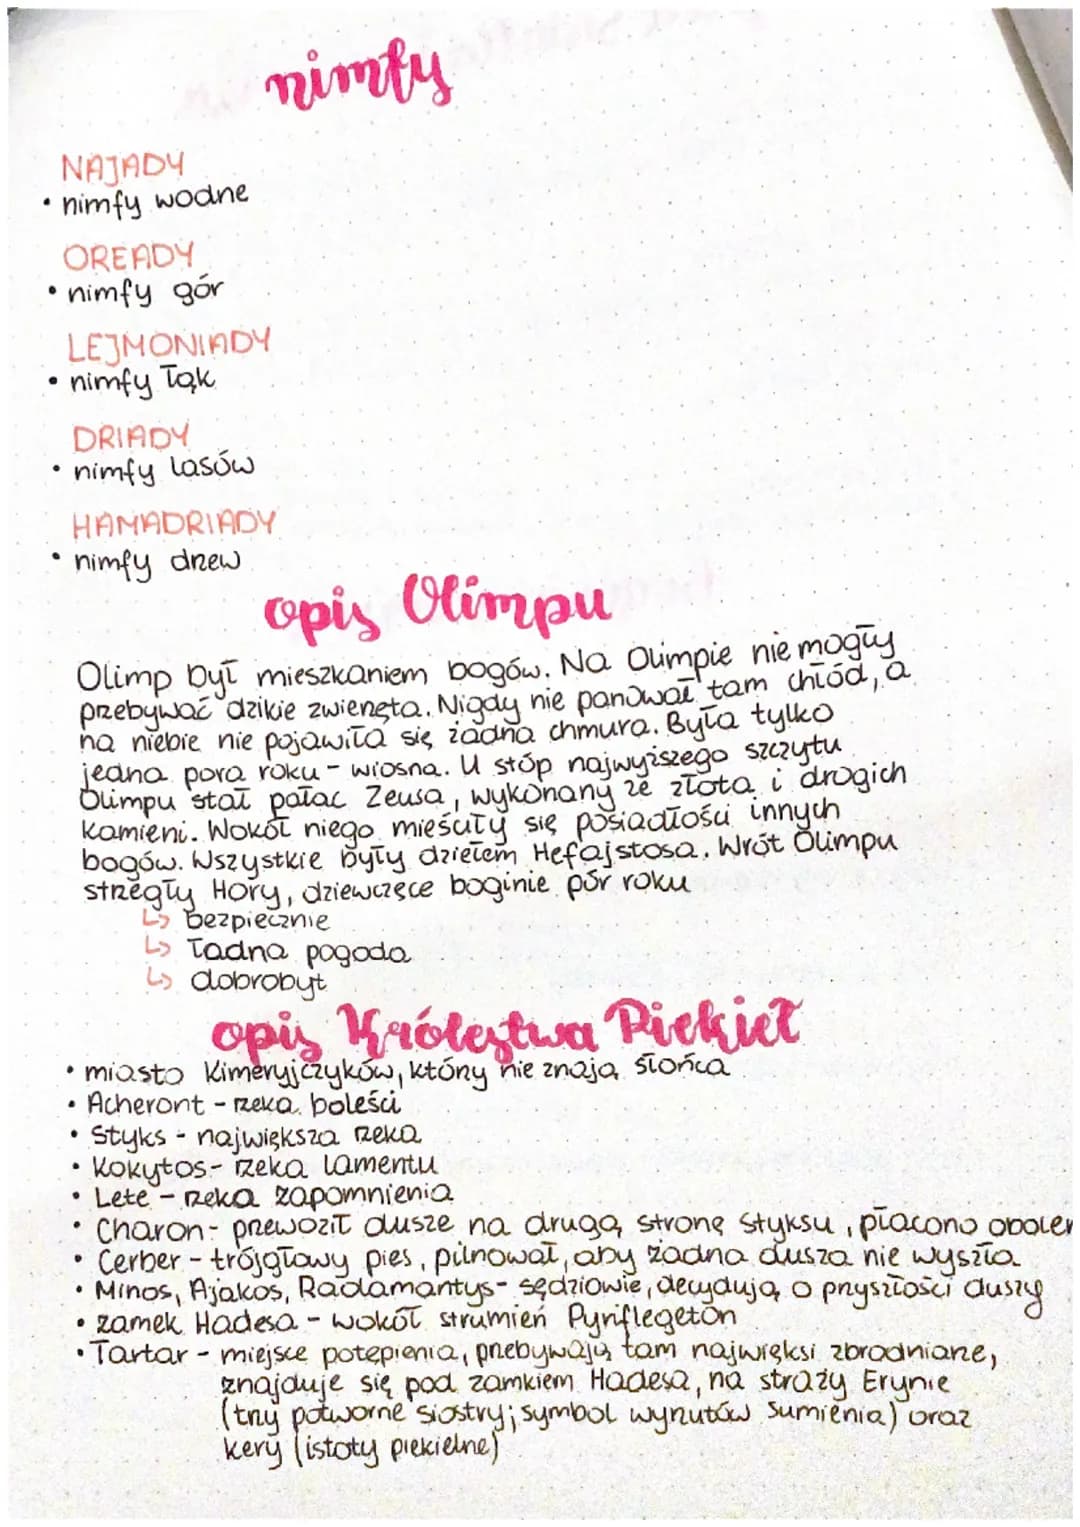 nimfy
NAJADY
• nimfy wodne
OREADY
• nimfy gór
LEJMONIADY
• nimfy łąk
DRIADY
• nimfy lasów
HAMADRIADY
• nimfy drzew
opis Olimpu
Olimp był mieszkaniem bogów. Na Olimpie nie mogły
przebywać dzikie zwierzęta. Nigdy nie panował tam chłód, a
na niebie nie pojawiła się żadna chmura. Była tylko
jedna pora roku - wiosna. U stóp najwyższego szczytu
Olimpu stał pałac Zeusa, wykonany ze złota i drogich
kamieni. Wokół niego mieściły się posiadłości innych
bogów. Wszystkie były dziełem Hefajstosa. Wrót Olimpu
strzegły Hory, dziewczęce boginie pór roku
↳ bezpiecznie
↳ ładna pogoda
↳ dobrobyt
opis Królestwa Piekieł
• miasto Kimeryjczyków, który nie znają słońca
• Acheront - rzeka boleści
• Styks - największa rzeka
• Kokytos - rzeka lamentu
• Lete - rzeka zapomnienia
• Charon - przewoził dusze na drugą stronę Styksu, płacono obolem
• Cerber - trójgłowy pies, pilnował, aby żadna dusza nie wyszła
• Minos, Ajakos, Radamantys - sędziowie, decydują o przyszłości duszy
• zamek Hadesa - wokół strumień Pyriflegeton
• Tartar - miejsce potępienia, przebywają tam najwięksi zbrodniarze,
znajduje się pod zamkiem Hadesa, na straży Erynie
(trzy potworne siostry; symbol wyrzutów sumienia) oraz
kery (istoty piekielne)